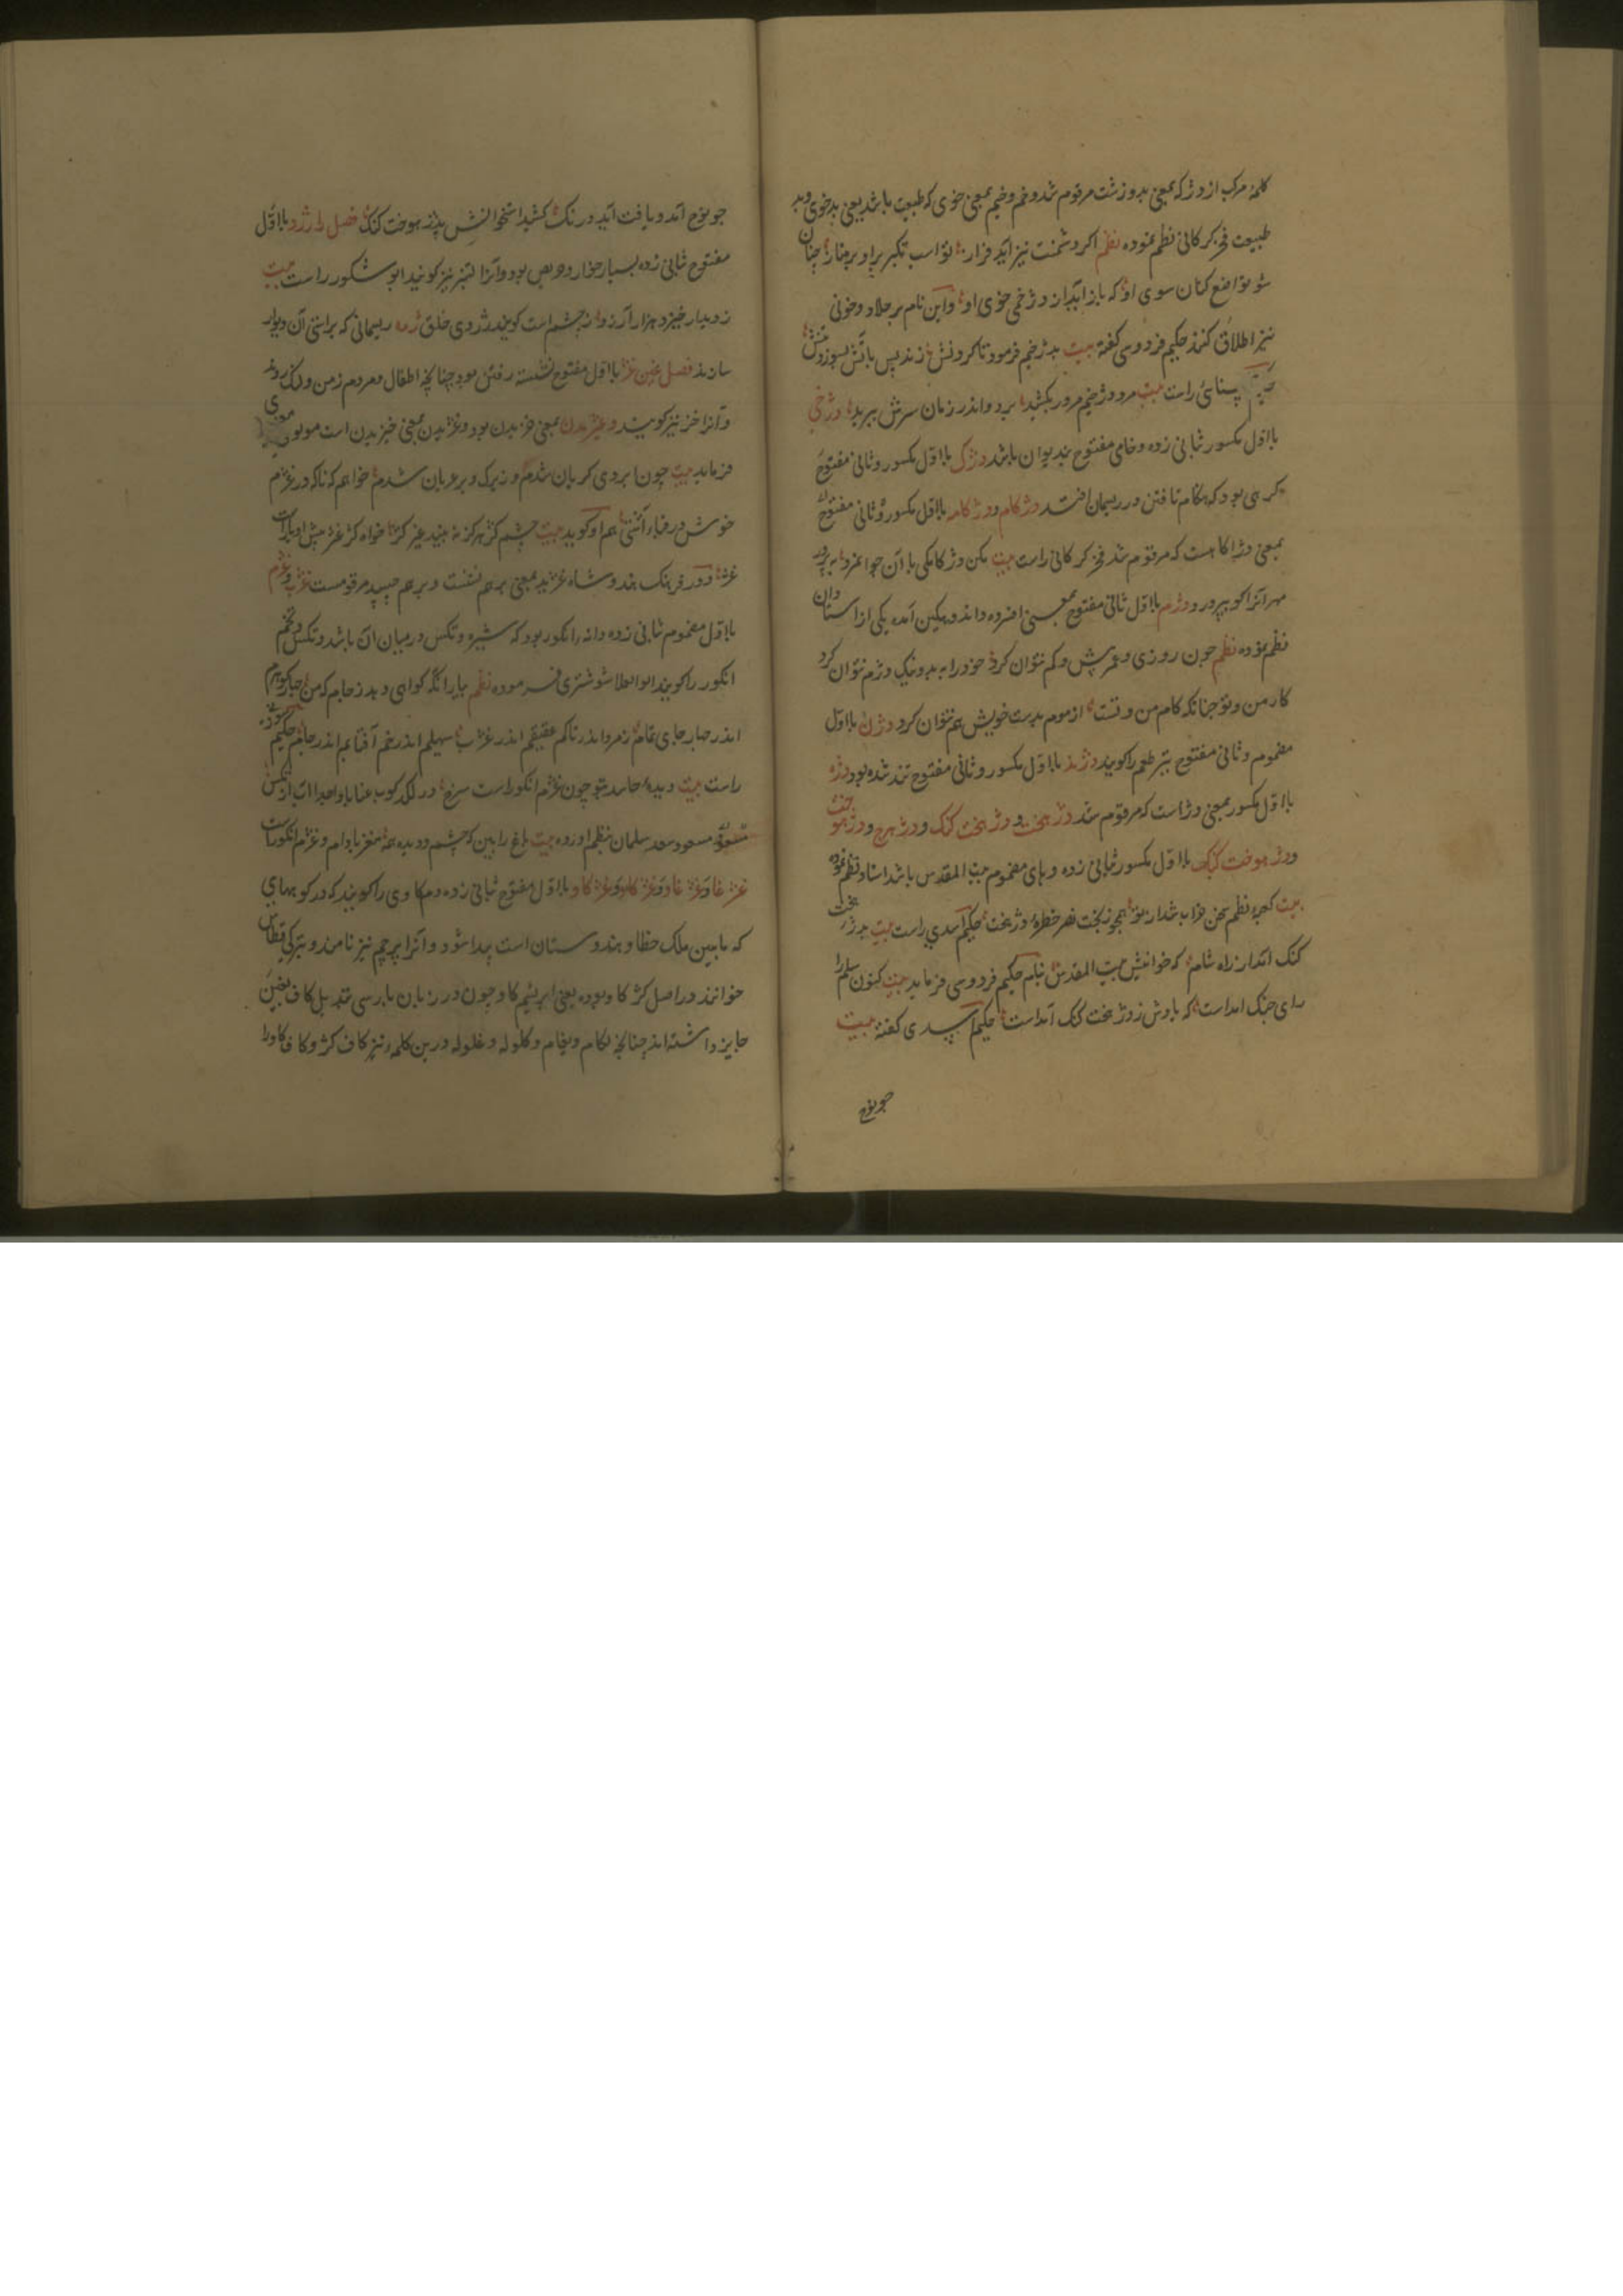 کلمهٔ مرکب از دژ که بمعنی بد و زشت مرقوم شد و خم و خیم بمعنی خوی که طبیعت باشد یعنی بدخوی و بد
طبیعت فخر کرکانی نظم نموده نظم اکر دشمنت نیز آید فراز تو اسب تکبر برو بر متاز چنان
شو تواضع کنان سوی او که باز آید از دژخمی خوی او و این نام بر جلاد و خونی
نیز اطلاق کنند حکیم فردوسی کفته بیت بدژخیم فرمود تا کردنش زند پس بآتش بسوزد تنش
سنائی راست بیت مرد دژخیم مرو را بکشد برد و اندر زمان سرش ببرد دژخی
بااوّل مکسور ثبانی زده و خای مفتوح بندیوان باشد دژک بااوّل مکسور و ثانی مفتوح
کرهی بود که هنکام تافتن در ریسمان افتد دژکام و دژکامه بااوّل مکسور و ثانی مفتوح
بمعنی دژاکاهست که مرقوم شد فخر کرکانی راست بیت مکن دژکامکی با آن جوانمرد بپرور
مهر آنرا کو بپرورد دژم بااوّل ثانی مفتوح بمعنی افسرده و اندوهکین آمده یکی از استادان
نظم نموده نظم چون روزی و عمر بیش و کم نتوان کرد خود را به بد و نیک دژم نتوان کرد
کار من و تو چنانکه کام من و تست از موم بدست خویش هم نتوان کرد دژن بااوّل
مضموم و ثانی مفتوح تیز طعم را کویند دژند بااوّل مکسور و ثانی مفتوح تند شده بود دژه
بااوّل مکسور بمعنی دژ است که مرقوم شد دژ هخت و دژ هخت کنک و دژ هرج و دژ هوخت
و دژ هوخت کنک بااوّل مکسور ثبانی زده و های مضموم بیت المقدس باشد استاد نظم نموده
بیت کعبهٔ نظم سخن خراب شد از تو همچو ز بخت نصر خطهٔ دژ هخت حکیم اسدی راست بیت بدژ هخت
کنک آمد از راه شام که خوانیش بیت المقدس بنام حکیم فردوسی فرماید بیت کنون سلم را
رای جنک آمداست که یارش ز دژ هخت کنک آمداست حکیم اسدی کفته بیت
جو نوح
جو نوح آمد و یافت آمد درنک کشید استخوانش بدژ هوخت کنک فصل را رژد بااوّل
مفتوح ثبانی زده بسیار خوار و حریص بود و آنرا لتنبر نیز کویند ابو شکور راست بیت
ز دیدار خیزد هزار آرزو ز چشم است کویند رژدی خلق رژه ریسمانی که براستی آن دیوار
سازند فصل غین غژ بااوّل مفتوح نشسته رفتن بود چنانچه اطفال و مردم زمن و لنک روند
و آنرا خز نیز کویند و غژیدن بمعنی خزیدن بود و غژیدن بمعنی خیزیدن است مولوی معنوی
فرماید بیت چون ابر دی کریان شدم وز برک و بر عریان شدم خواهم که ناکه در غژم
خوش در قباء آشتی هم او کوید بیت چشم کژ هرکز نه بیند غیر کژ خواه کژ غژ پیش او یا راست
غژ و در فرهنک هندوشاه غژید بمعنی برهم نشست و برهم چسبید مرقومست غژب و غژم
بااوّل مضموم ثبانی زده دانهٔ انکور بود که شیره و تکس در میان آن باشد و تکس تخم
انکور را کویند ابوالعلا شوشتری فرموده نظم بیار آنکه کواهی دهد ز جام که من چهار کوهرم
اندر چهار جای تمام زمرد اندر تاکم عقیقم اندر غژب سهیلم اندر خم آفتابم اندر جام حکیم سوزنی
راست بیت دیدهٔ حاسد تو چون غژم انکور است سرخ در لکدکوب عنا بادا جدا آب از تکس
مسعود سعد سلمان بنظم آورده بیت باغ را بین که چشم و دیده همه مغز بادام و غژم انکور است
غژغا و غژغاو و غژکا و غژکاو بااوّل مفتوح ثبانی زده دم کاوی را کویند که در کوههای
که مابین ملک خطا و هندوستان است پیدا شود و آنرا پرچم نیز نامند و بترکی قطاس
خوانند در اصل کژکاو بوده یعنی ابریشم کاو چون در زبان پارسی تبدیل کاف بغین
جایز داشته اند چنانچه لکام و لغام و کلوله و غلوله درین کلمه نیز کاف کژ و کاف کاو را